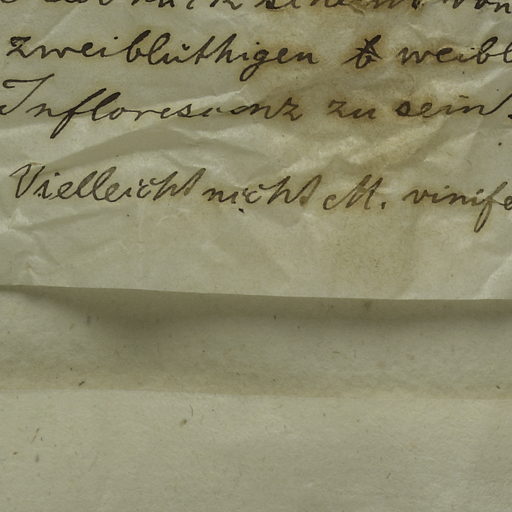 von
zweiblüthigen weibl
Infloresconz zu sein.
Vielleicht nicht M. vinife